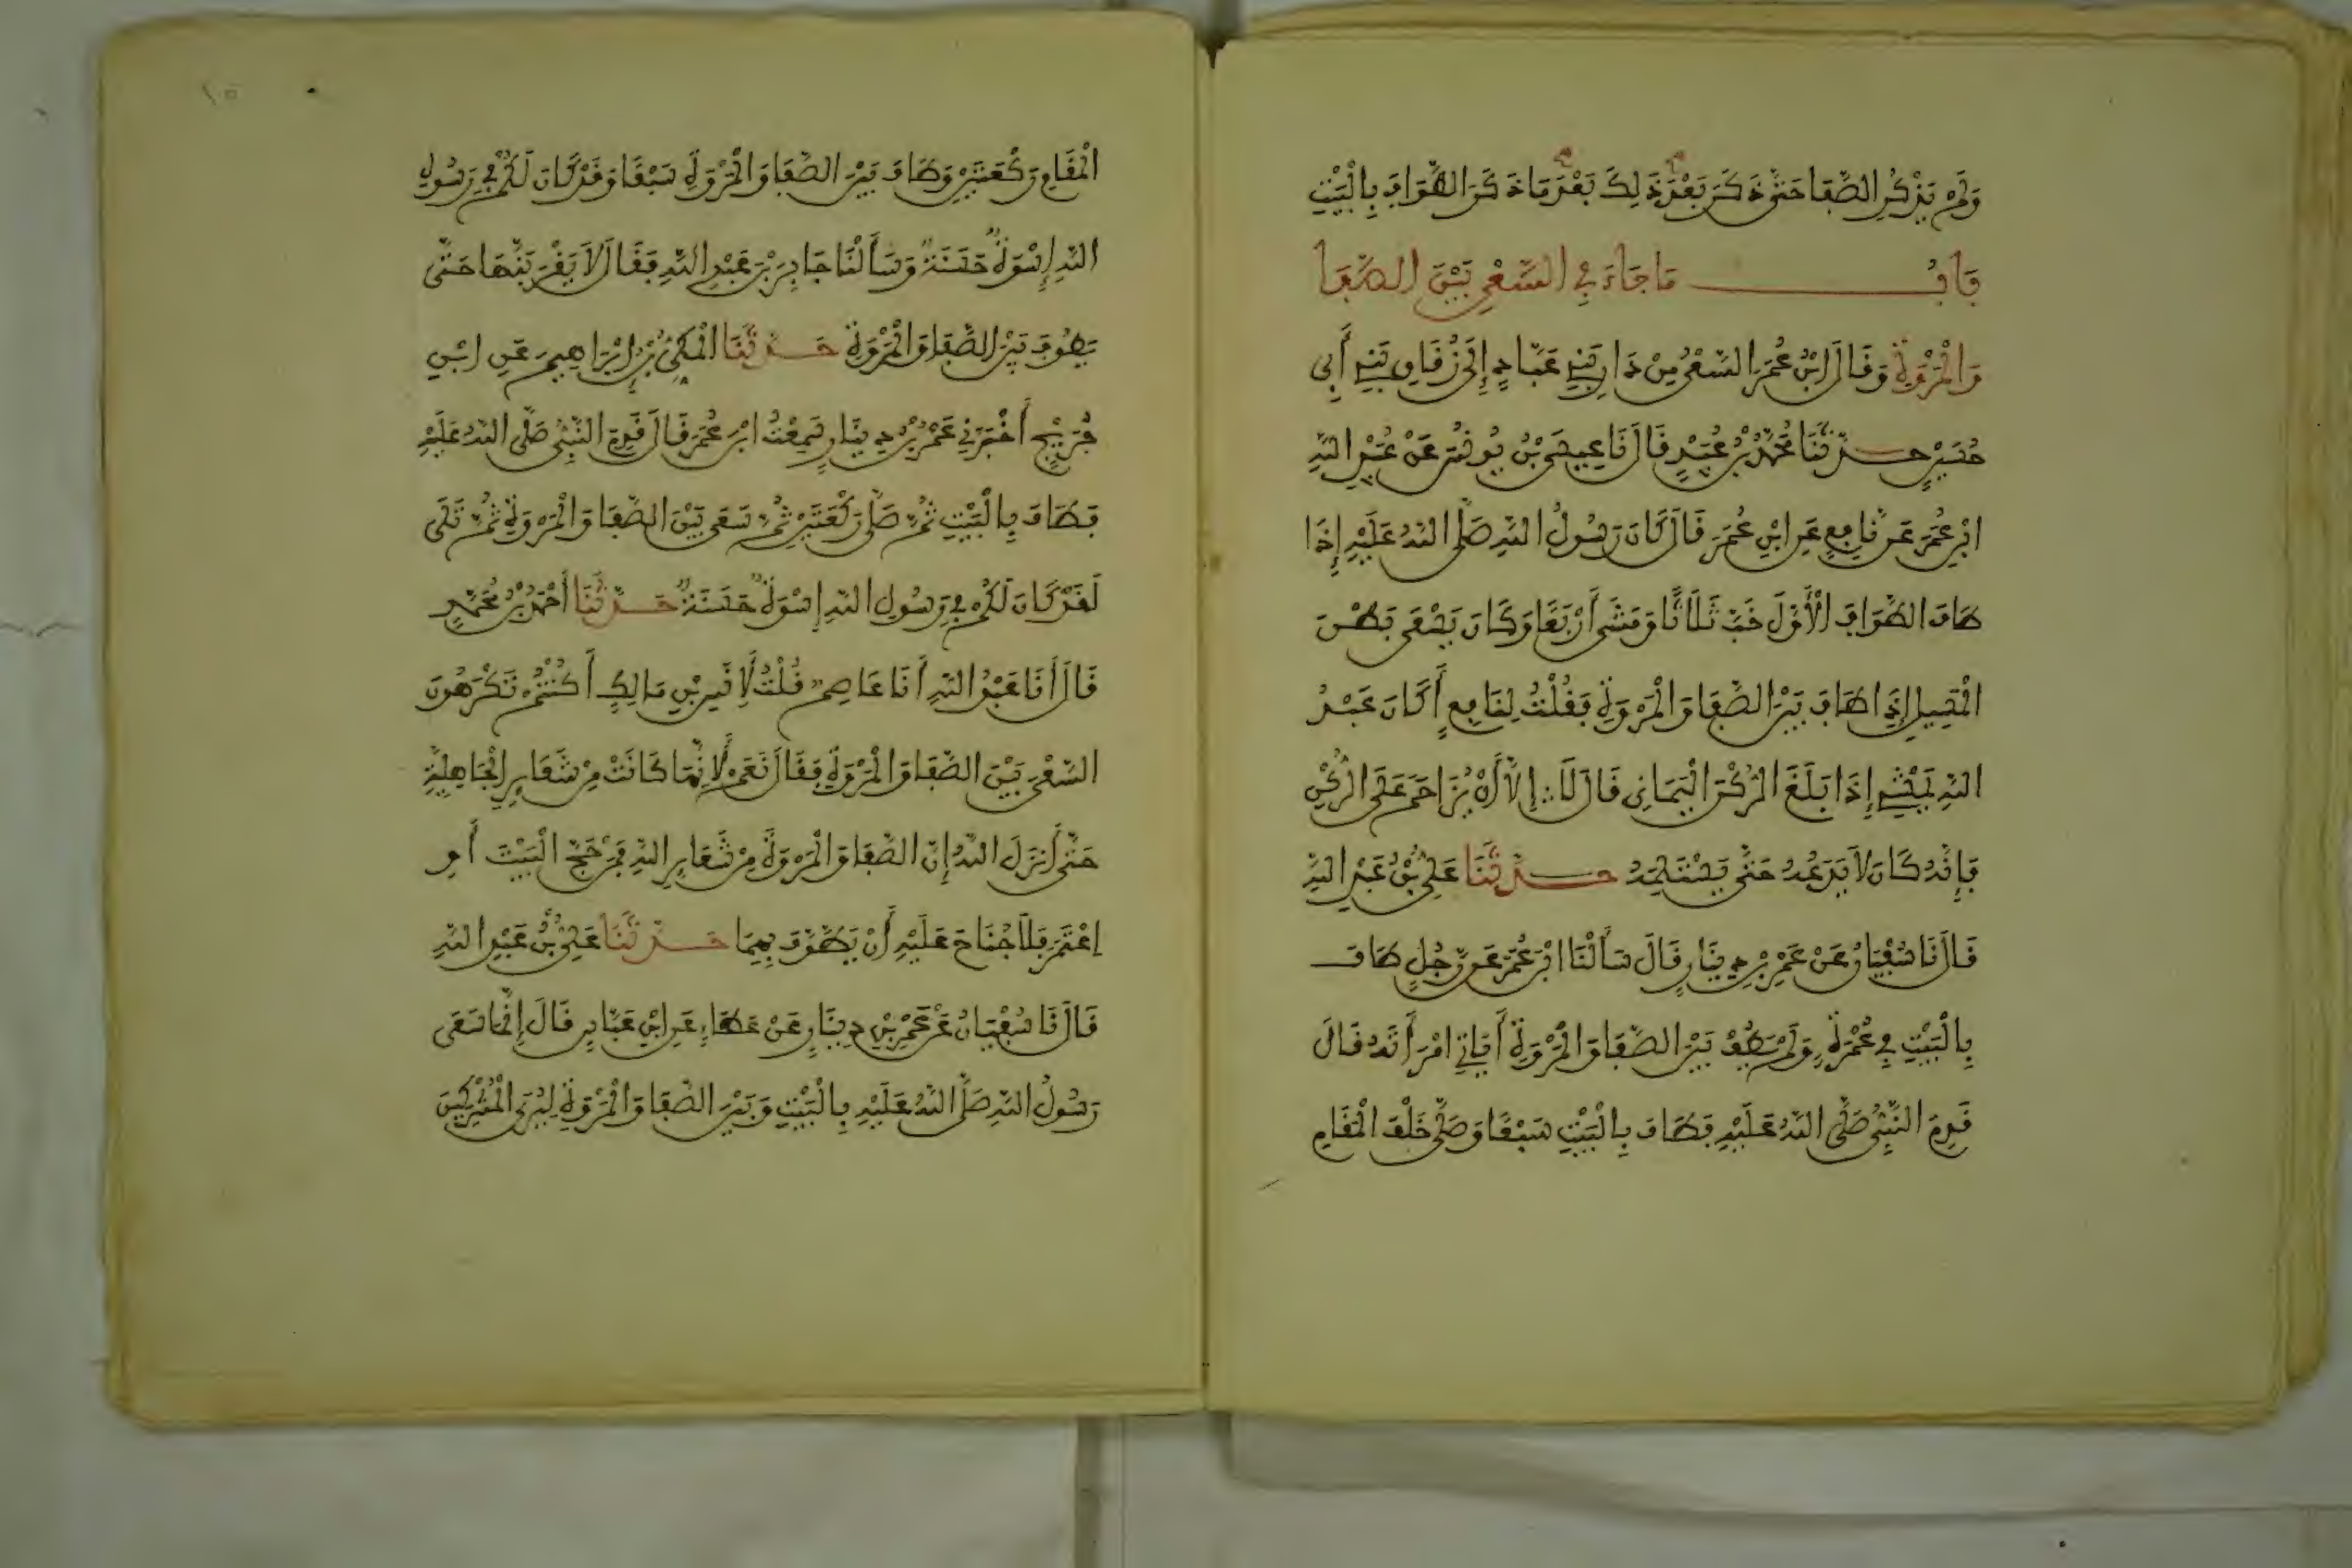 وَلَمْ يَذْكُرِ الصَّفَا حَتَّى ذَكَرَ بَعْدَ ذَلِكَ بَعْدَ مَا ذَكَرَ الطَّوَافَ بِالْبَيْتِ
بَابُ مَا جَاءَ فِي السَّعْيِ بَيْنَ الصَّفَا
وَالْمَرْوَةِ وَقَالَ ابْنُ عُمَرَ السَّعْيُ مِنْ دَارِ بَنِي عَبَّادٍ إِلَى زُقَاقِ بَنِي أَبِي
حُسَيْنٍ حدثنا مُحَمَّدُ بْنُ عُبَيْدٍ قَالَ نَا عِيسَى بْنُ يُونُسَ عَنْ عُبَيْدِ اللَّهِ
ابْنِ عُمَرَ عَنْ نَافِعٍ عَنِ ابْنِ عُمَرَ قَالَ كَانَ رَسُولُ اللَّهِ صَلَّى اللَّهُ عَلَيْهِ إِذَا
طَافَ الطَّوَافَ الْأَوَّلَ خَبَّ ثَلَاثًا وَمَشَى أَرْبَعًا وَكَانَ يَسْعَى بَطْنَ
الْمَسِيلِ إِذَا طَافَ بَيْنَ الصَّفَا وَالْمَرْوَةِ فَقُلْتُ لِنَافِعٍ أَكَانَ عَبْدُ
اللَّهِ يَمْشِي إِذَا بَلَغَ الرُّكْنَ الْيَمَانِي قَالَ لَا إِلَّا أَنْ يُزَاحَمَ عَلَى الرُّكْنِ
فَإِنَّهُ كَانَ لَا يَدَعُهُ حَتَّى يَسْتَلِمَهُ حدثنا عَلِيُّ بْنُ عَبْدِ اللَّهِ
قَالَ نَا سُفْيَانُ عَنْ عَمْرِ بْنِ دِينَارٍ قَالَ سَأَلْنَا ابْنَ عُمَرَ عَنْ رَجُلٍ طَافَ
بِالْبَيْتِ فِي عُمْرَةٍ وَلَمْ يَطُفْ بَيْنَ الصَّفَا وَالْمَرْوَةِ أَيَأْتِي امْرَأَتَهُ قَالَ
قَدِمَ النَّبِيُّ صَلَّى اللَّهُ عَلَيْهِ فَطَافَ بِالْبَيْتِ سَبْعًا وَصَلَّى خَلْفَ الْمَقَامِ
الْمَقَامِ رَكْعَتَيْنِ وَطَافَ بَيْنَ الصَّفَا وَالْمَرْوَةِ سَبْعًا وَقَدْ كَانَ لَكُمْ فِي رَسُولِ
اللَّهِ إِسْوَةٌ حَسَنَةٌ وَسَأَلْنَا جَابِرَ بْنَ عَبْدِ اللَّهِ فَقَالَ لَا يَقْرَبَنَّهَا حَتَّى
يَطُوفَ بَيْنَ الصَّفَا وَالْمَرْوَةِ حدثنا الْمَكِّيُّ بْنُ إِبْرَاهِيمَ عَنِ ابْنِ
جُرَيْجٍ أَخْبَرَنِي عَمْرُ بْنُ دِينَارٍ سَمِعْتُ ابْنَ عُمَرَ قَالَ قَدِمَ النَّبِيُّ صَلَّى اللَّهُ عَلَيْهِ
فَطَافَ بِالْبَيْتِ ثُمَّ صَلَّى رَكْعَتَيْنِ ثُمَّ سَعَى بَيْنَ الصَّفَا وَالْمَرْوَةِ ثُمَّ تَلَى
لَقَدْ كَانَ لَكُمْ فِي رَسُولِ اللَّهِ إِسْوَةٌ حَسَنَةٌ حدثنا أَحْمَدُ بْنُ مُحَمَّدٍ
قَالَ أَنَا عَبْدُ اللَّهِ أَنَا عَاصِمٌ قُلْتُ لِأَنَسِ بْنِ مَالِكٍ أَكُنْتُمْ تَكْرَهُونَ
السَّعْيَ بَيْنَ الصَّفَا وَالْمَرْوَةِ فَقَالَ نَعَمْ لِأَنَّهَا كَانَتْ مِنْ شَعَايِرِ الْجَاهِلِيَّةِ
حَتَّى أَنْزَلَ اللَّهُ إِنَّ الصَّفَا وَالْمَرْوَةَ مِنْ شَعَايِرِ اللَّهِ فَمَنْ حَجَّ الْبَيْتَ أَوِ
اعْتَمَرَ فَلَا جُنَاحَ عَلَيْهِ أَنْ يَطَّوَّفَ بِهِمَا حدثنا عَلِيُّ بْنُ عَبْدِ اللَّهِ
قَالَ نَا سُفْيَانُ عَنْ عَمْرِ بْنِ دِينَارٍ عَنْ عَطَاءٍ عَنِ ابْنِ عَبَّاسٍ قَالَ إِنَّمَا سَعَى
رَسُولُ اللَّهِ صَلَّى اللَّهُ عَلَيْهِ بِالْبَيْتِ وَبَيْنَ الصَّفَا وَالْمَرْوَةِ لِيُرِيَ الْمُشْرِكِينَ